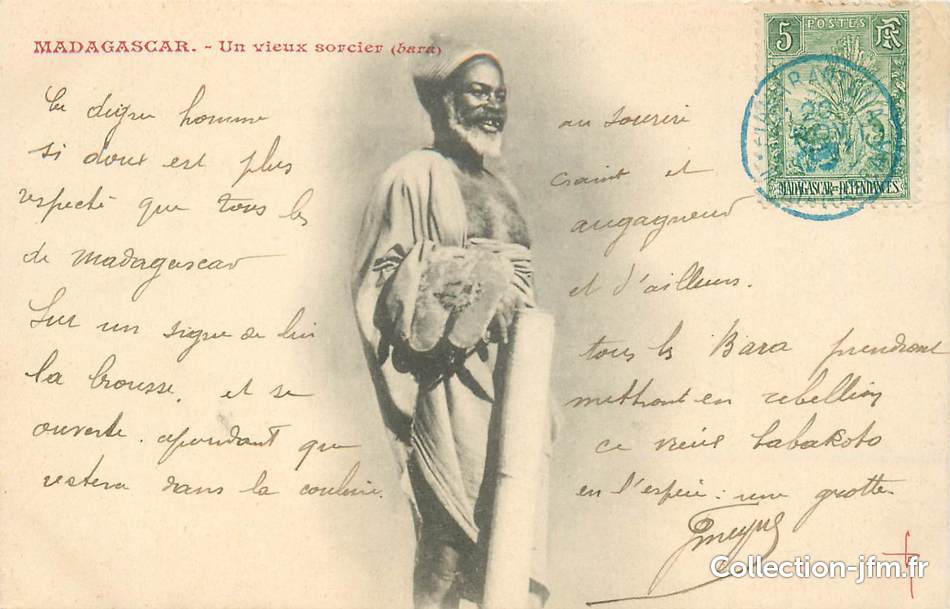 MADAGASCAR. - Un vieux sorcier (bara)
5 POSTES RF
MADAGASCAR ET DÉPENDANCES
Ce digne homme au sourire
si doux est plus craint et
respecté que tous les augagneur
de Madagascar et d'ailleurs.
Sur un signe de lui tous les Bara prendront
la brousse, et se mettront en rebellion
ouverte. cependant que ce vieux
restera dans la coulisse. en l'espèce : une grotte.
Collection-jfm.fr